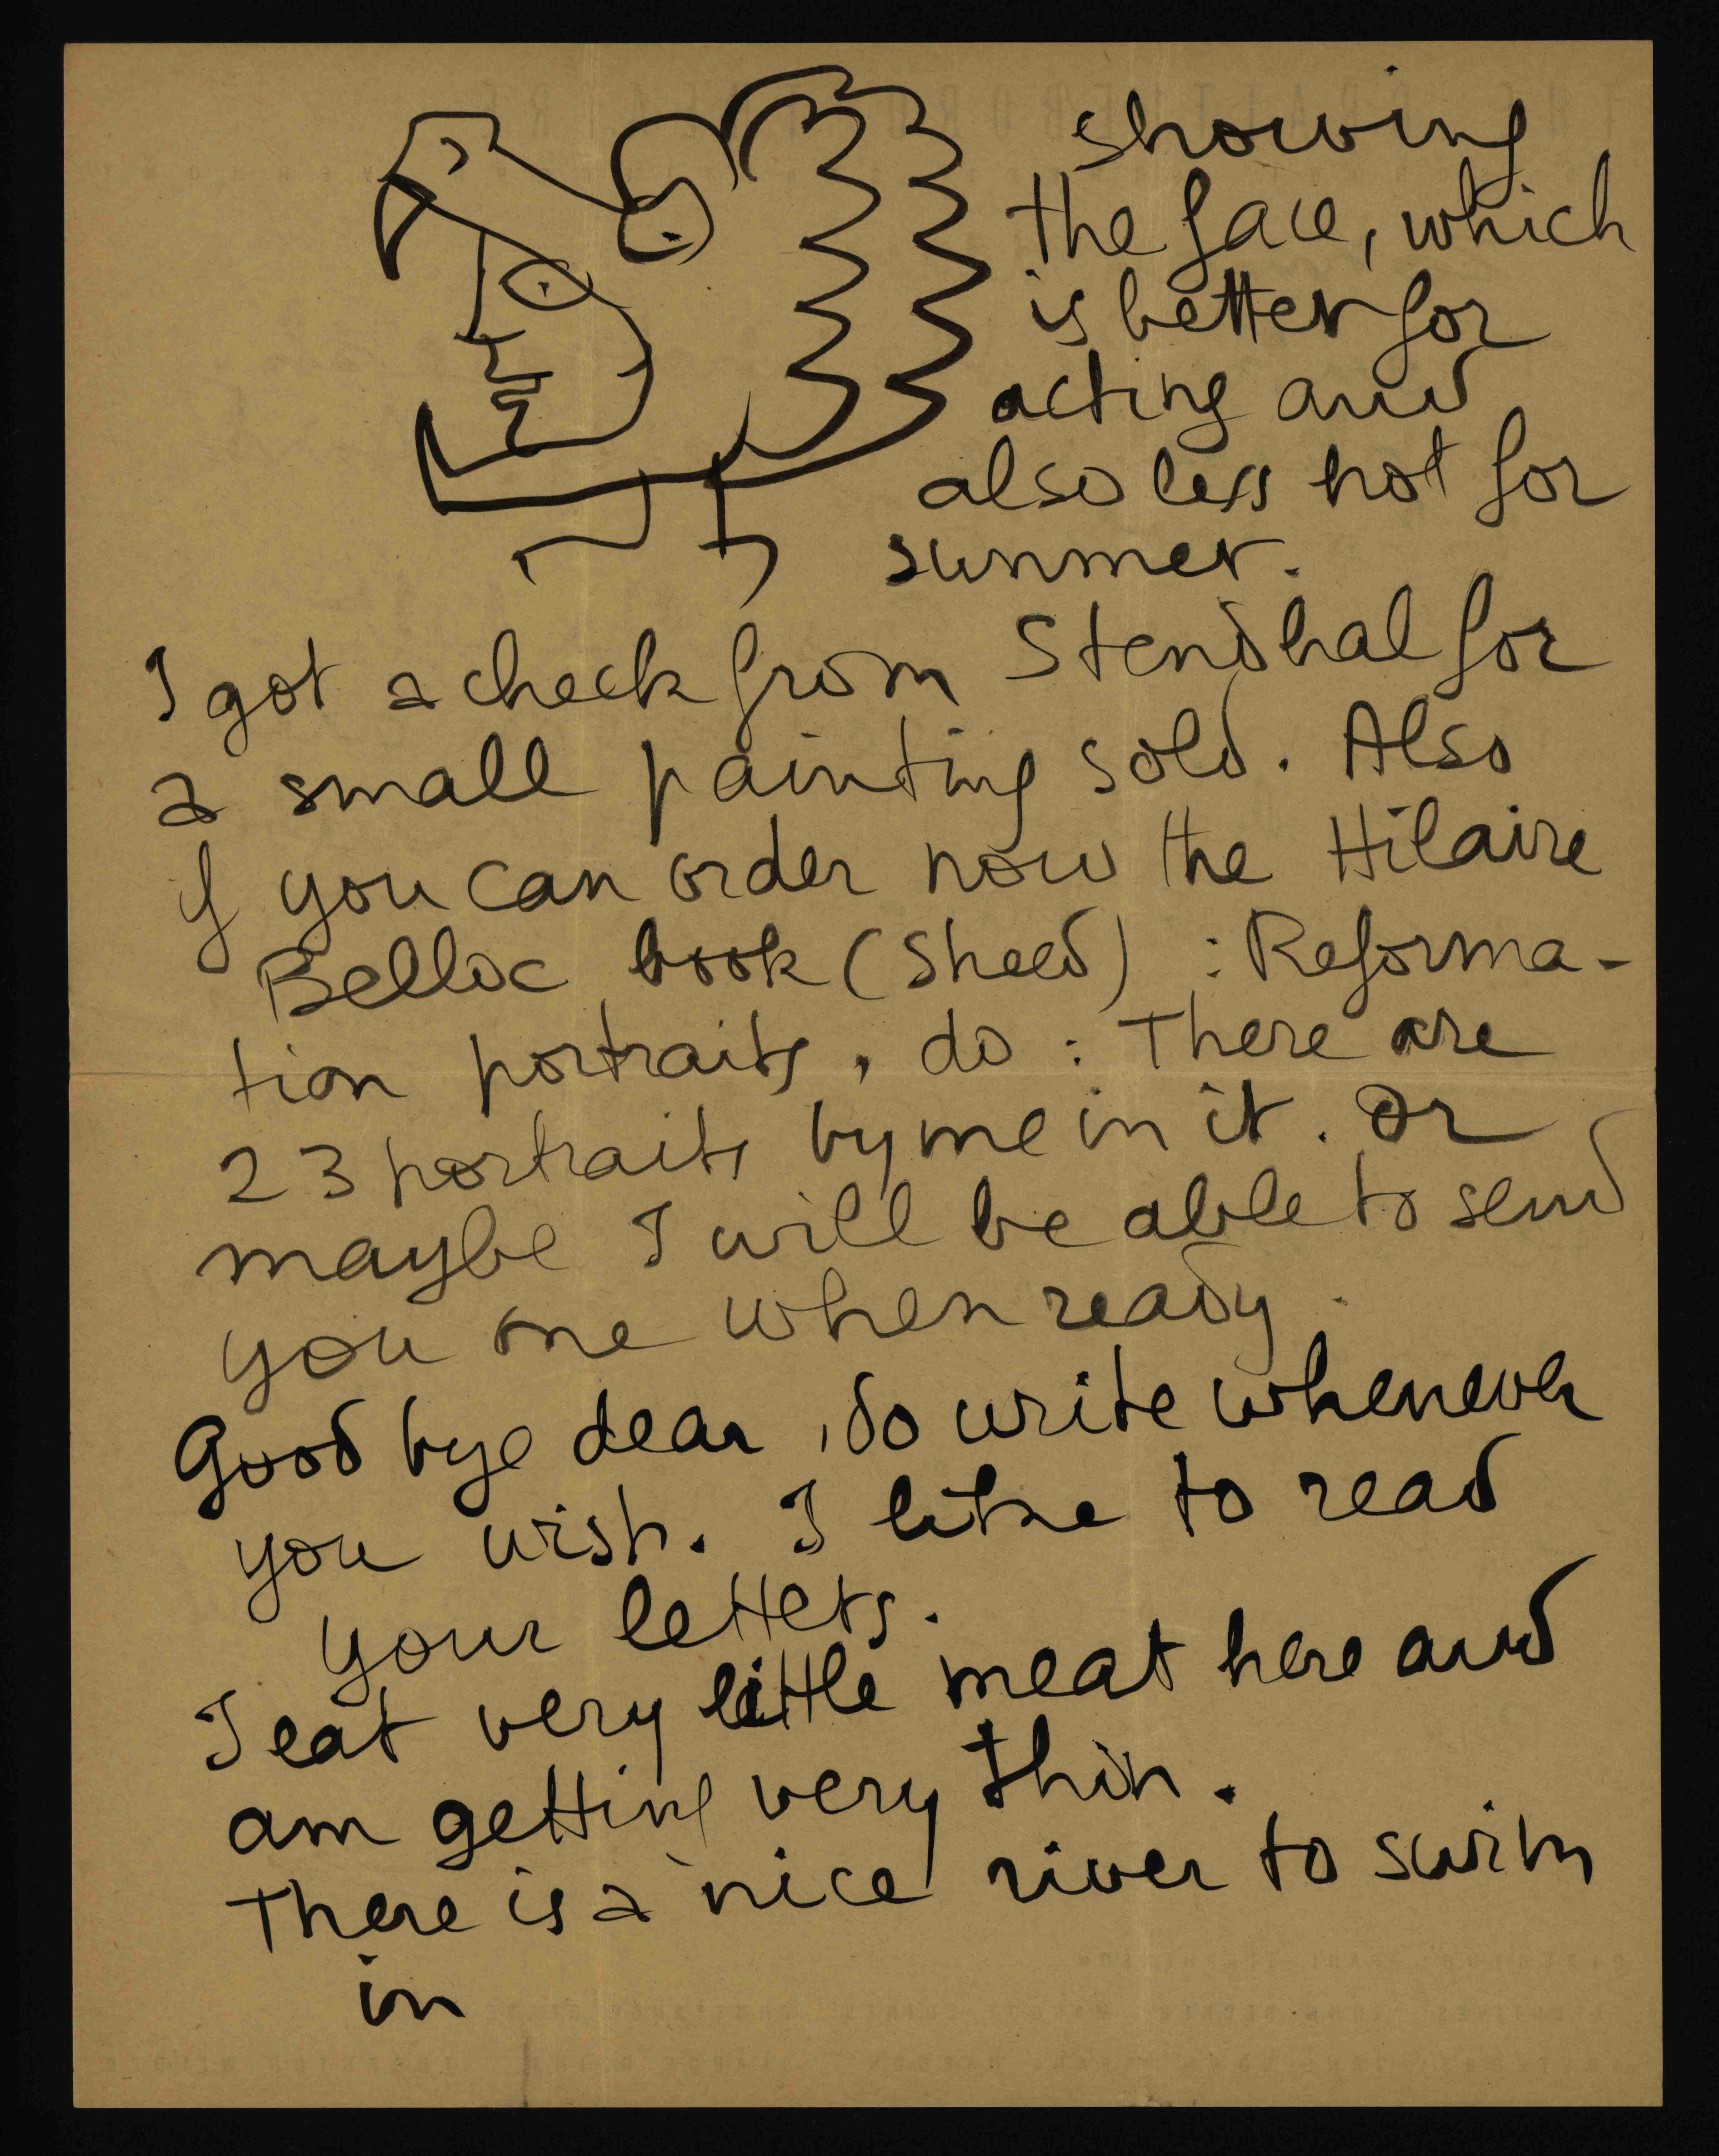 showing
the face, which
is better for
acting and
also less hot for
summer.
I got a check from Stendhal for
a small painting sold. Also
if you can order now the Hilaire
Belloc book (Sheed) : Reforma-
tion portraits, do : There are
23 portraits by me in it. Or
maybe I will be able to send
you one when ready.
Good bye dear, do write whenever
you wish. I like to read
your letters.
I eat very little meat here and
am getting very thin.
There is a nice river to swim
in